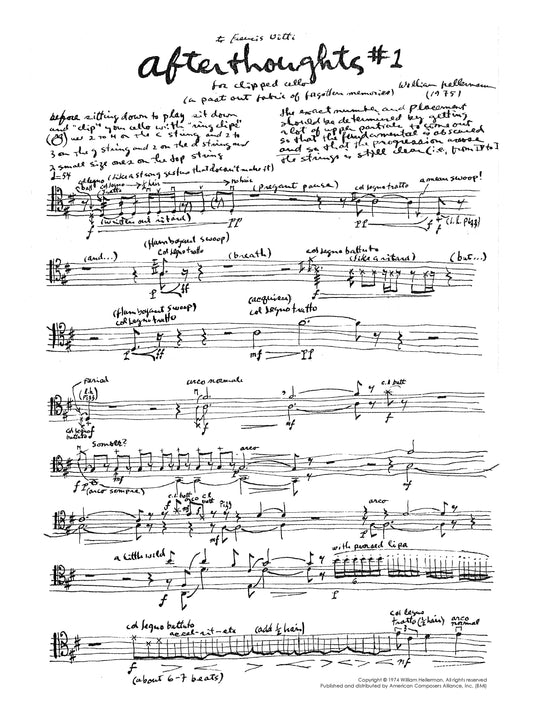 to Francis Uitti
afterthoughts #1
for clipped cello
(a past out fabric of forgotten memories)
William Hellermann
(1975)
Before sitting down to play sit down
and "clip" your cello with "ring clips"
use 2 to 4 on the C string and 2 to
3 on the g string and 2 on the d string and
2 small size ones on the top string
the exact number and placement
should be determined by getting
a lot of upper partials to come out
so that the fundamental is obscured
and so that the progression across
the strings is still clear (i.e., from IV to I)
♩=54
(like a strong gesture that doesn't make it)
col legno
tratto
½ hair
no hair
(Pregnant pause)
col legno tratto
a mean swoop!
(written out ritard)
f
pp
ff
(l.h. pizz)
(and...)
(flamboyant swoop)
col legno tratto
(breath)
col legno battuto
(like a ritard)
(but...)
f
ff
pp
(flamboyant swoop)
col legno tratto
(acquiesce)
col legno tratto
f
ff
mf
pp
(l.h.
pizz)
arco normale
c.l. batt
col legno
battuto
f
mf
f
Somble?
arco
f
p
mf
(arco sempre)
mf
c.l. batt
arco
c.l.
batt
pizz
arco
f
mf
a little wild
with pursed lips
f
mf
f
6
col legno battuto
accel-rit-etc
(add ½ hair)
col legno
tratto (½ hair)
arco
normal
3
f
mf
(about 6-7 beats)
Copyright © 1976 William Hellerman. All rights reserved
Published and distributed by American Composers Alliance, Inc. (BMI)